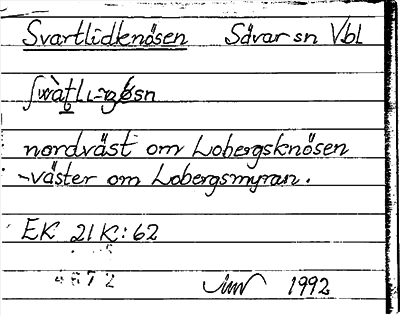 Svartlidknösen Sävar sn Vbl
nordväst om Lobergsknösen
-väster om Lobergsmyran.
EK 21K:62
4672 1992